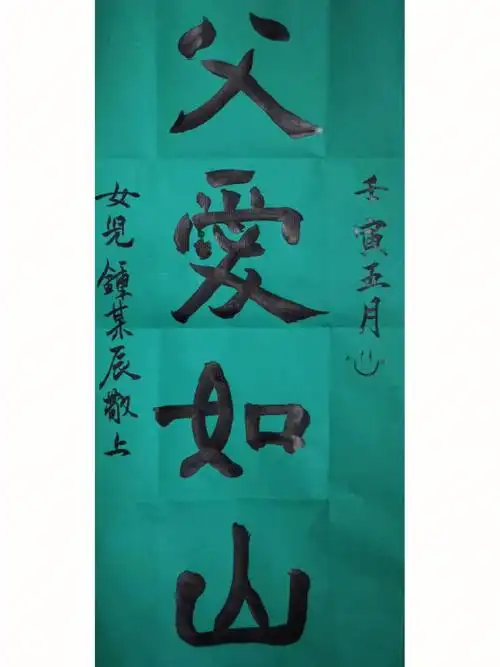 壬寅五月
父愛如山
女兒鍾某辰敬上